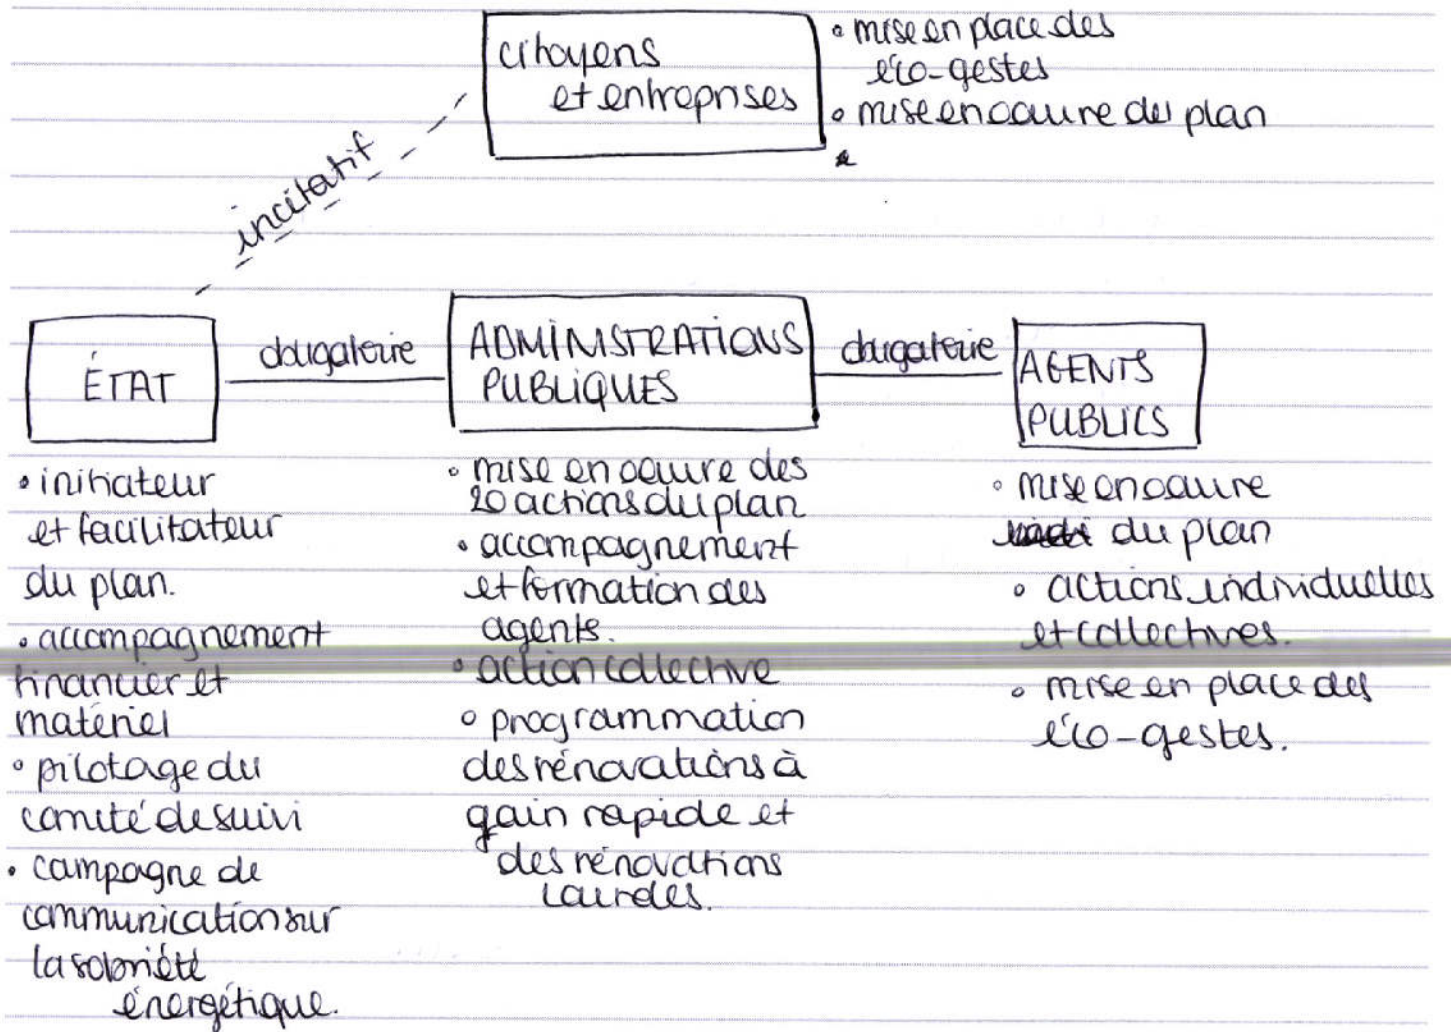 citoyens
et entreprises
• mise en place des
éco-gestes
• mise en oeuvre du plan
incitatif
ÉTAT
obligatoire
ADMINISTRATIONS
PUBLIQUES
obligatoire
AGENTS
PUBLICS
• initiateur
et facilitateur
du plan.
• accompagnement
financier et
matériel
• pilotage du
comité de suivi
• campagne de
communication sur
la sobriété
énergétique.
• mise en oeuvre des
20 actions du plan
• accompagnement
et formation des
agents.
• action collective
• programmation
des rénovations à
gain rapide et
des rénovations
lourdes.
• mise en oeuvre
du plan
• actions individuelles
et collectives.
• mise en place des
éco-gestes.